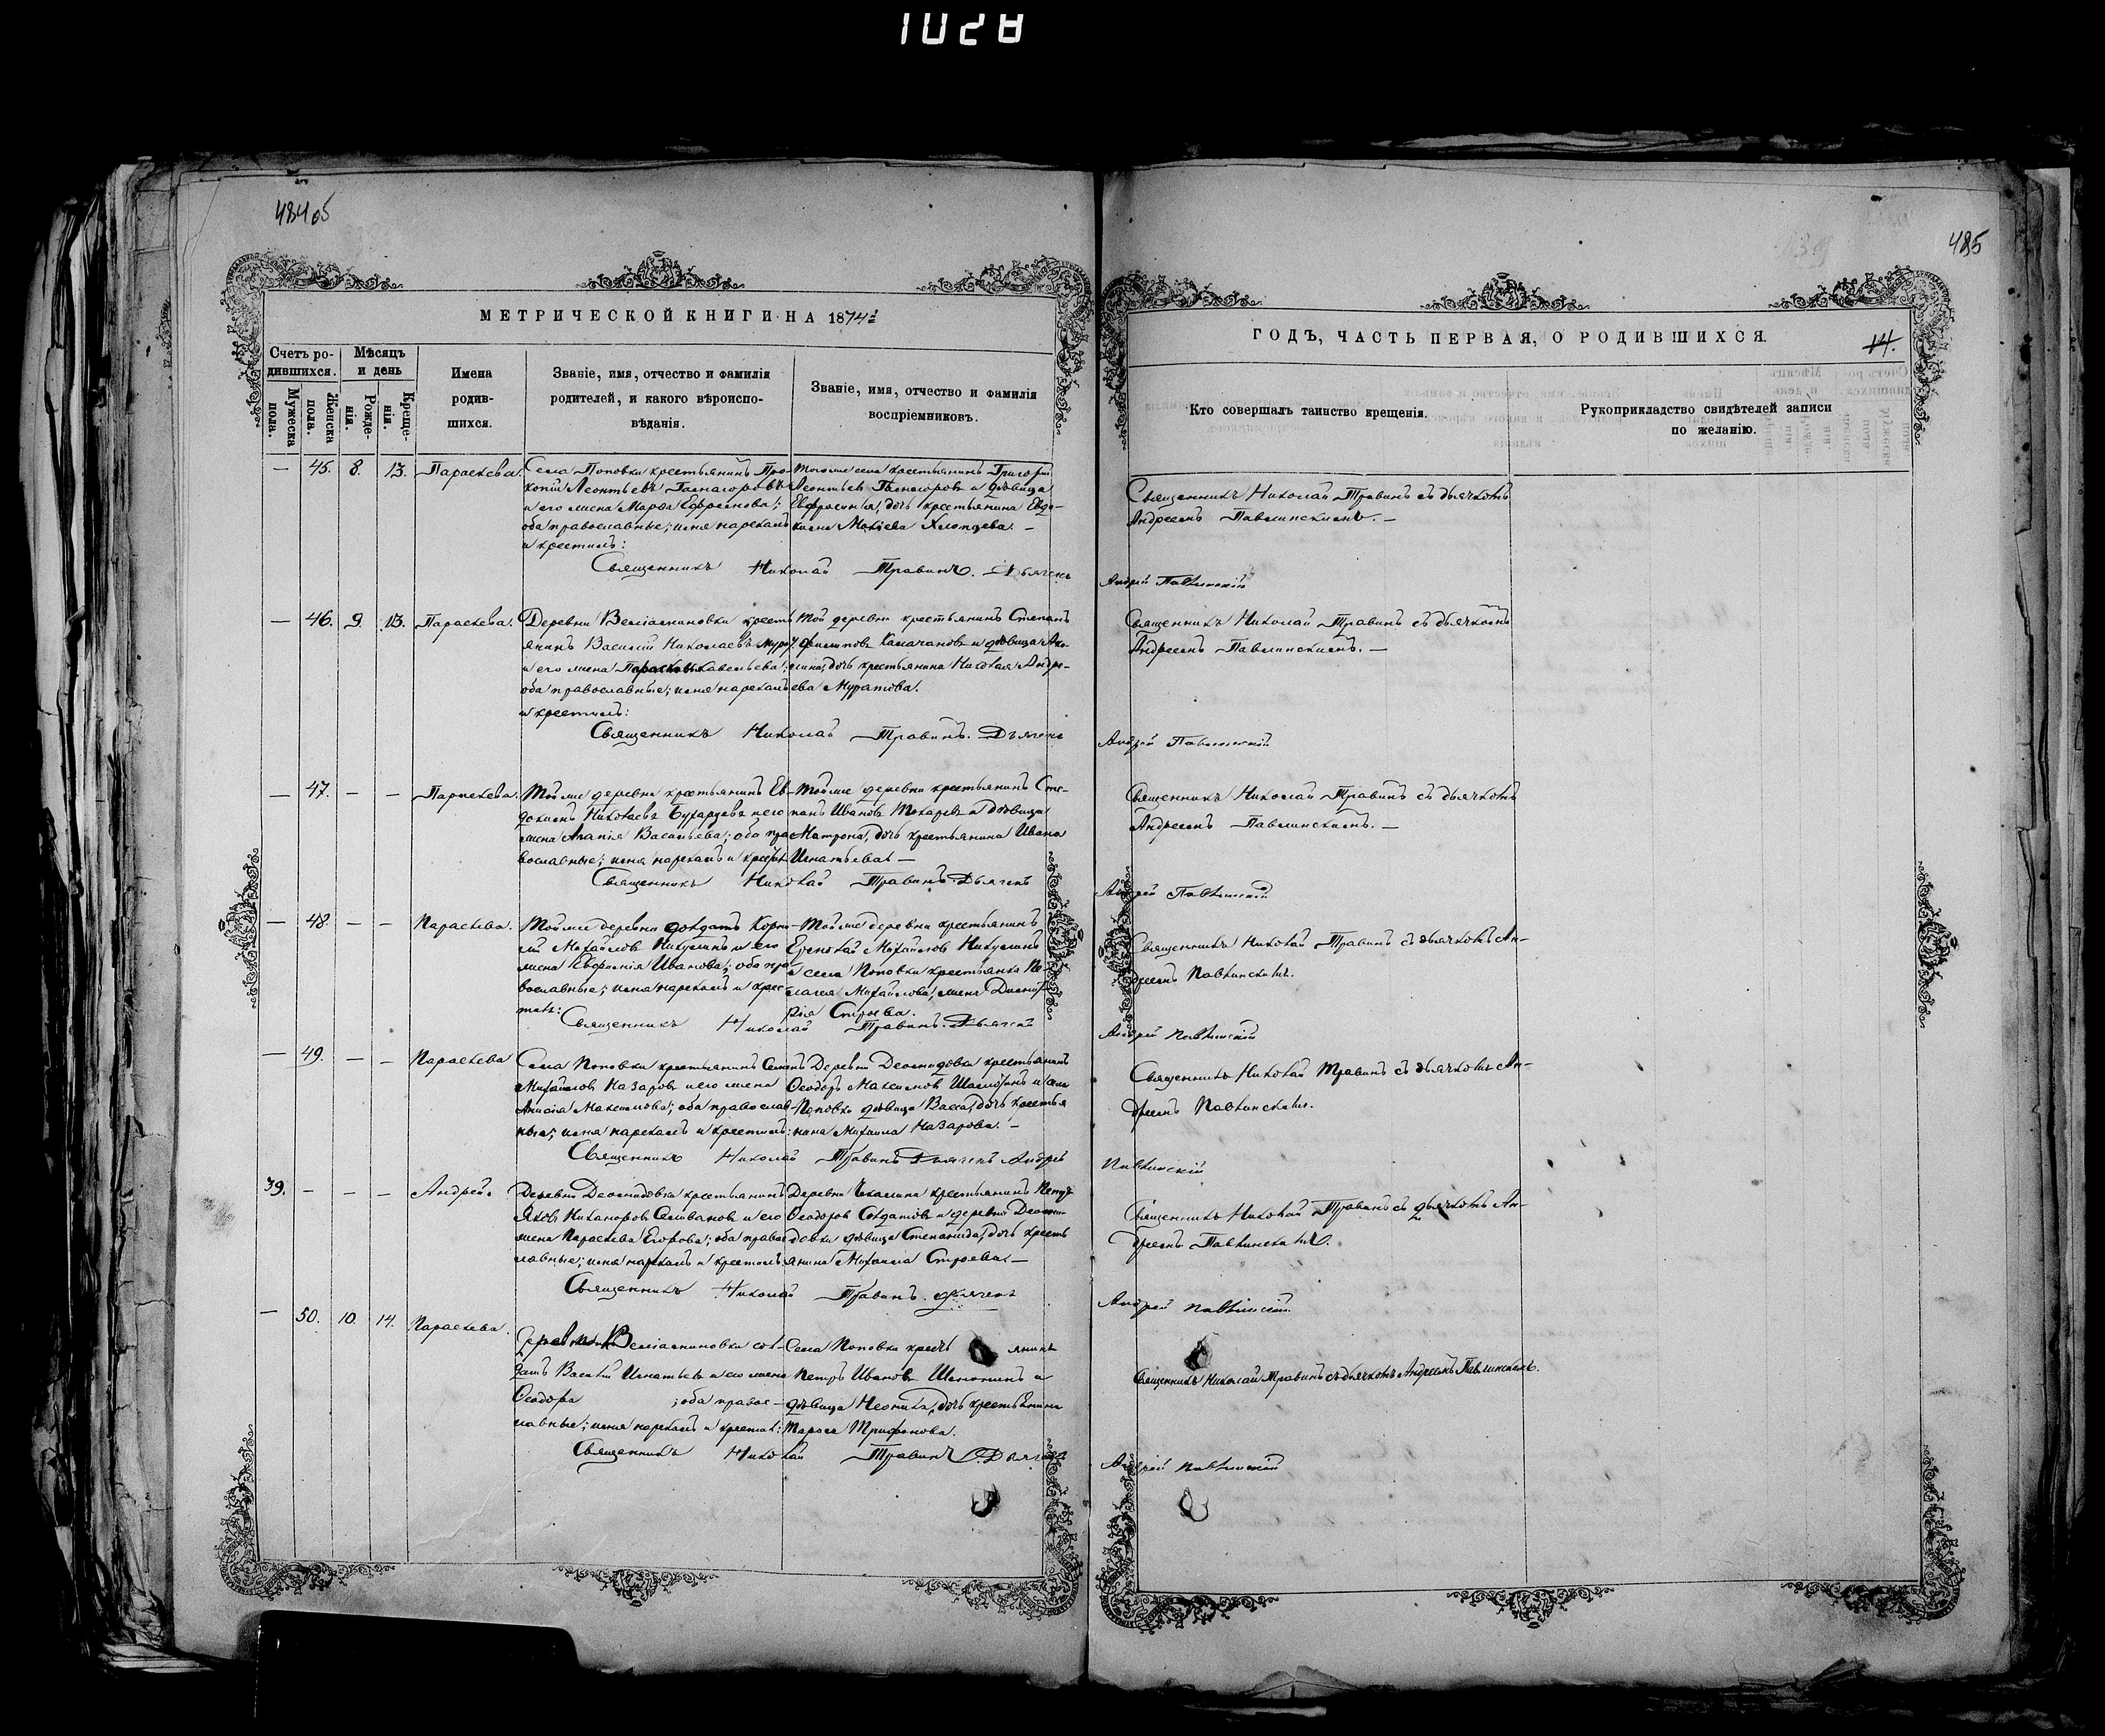 1028
484об
485
МЕТРИЧЕСКОЙ КНИГИ НА 1874й
ГОДЪ, ЧАСТЬ ПЕРВАЯ, О РОДИВШИХСЯ.
14.
Счетъ родившихся.
Мужеска пола.
Женска пола.
Мѣсяцъ и день
Рожденія.
Крещенія.
Имена родившихся.
Званіе, имя, отчество и фамилія
родителей, и какого вѣроиспо-
вѣданія.
Званіе, имя, отчество и фамилія
воспріемниковъ.
Кто совершалъ таинство крещенія.
Рукоприкладство свидѣтелей записи
по желанію.
— 45. 8. 13. Параскева.
Села Поповки крестьянинъ Про-
копій Леонтьевъ
и его жена Марѳа Ефремова;
оба православные; имя нарекалъ
и крестилъ:
Тогоже села крестьянинъ Григорій
Леонтьевъ и дѣвица
Евфросинья, дочь крестьянина Евдо-
кима Хлопцева. —
Священникъ Николай Травинъ съ дьячкомъ
Андреемъ Павлинскимъ. —
Священникъ Николай Травинъ. Дьячекъ
Андрей Павлинскій
— 46. 9. 13. Параскева.
Деревни крестья-
янинъ Василій Николаевъ
и его жена Савельева;
оба православные; имя нарекалъ
и крестилъ:
Той деревни крестьянинъ Степанъ
Филиповъ и дѣвица Аку-
лина, дочь крестьянина Николая Андре-
ева Муратова.
Священникъ Николай Травинъ съ дьячкомъ
Андреемъ Павлинскимъ. —
Священникъ Николай Травинъ. Дьячекъ
Андрей Павлинскій
— 47. — — Параскева.
Тойже деревни крестьянинъ Ев-
докимъ Николаевъ и его
жена Агапія Васильева; оба пра-
вославные; имя нарекалъ и крест:
Тойже деревни крестьянинъ Сте-
панъ Ивановъ Токаревъ и дѣвица
Матрона, дочь крестьянина Ивана
Игнатьева. —
Священникъ Николай Травинъ съ дьячкомъ
Андреемъ Павлинскимъ. —
Священникъ Николай Травинъ. Дьячекъ
Андрей Павлинскій
— 48. — — Параскева.
Тойже деревни солдатъ Корни-
лій Михайловъ Никулинъ и его
жена Евфимія Иванова; оба пра-
вославные; имя нарекалъ и крес-
тилъ:
Тойже деревни крестьянинъ
Ермолай Михайловъ Никулинъ
и села Поповки крестьянка Пе-
лагея Михайлова, жена Димит-
рія Строева.
Священникъ Николай Травинъ съ дьячкомъ Ан-
дреемъ Павлинскимъ.
Священникъ Николай Травинъ. Дьячекъ
Андрей Павлинскій
— 49. — — Параскева
Села Поповки крестьянинъ Семенъ
Михайловъ Назаровъ и его жена
Анисія Максимова; оба православ-
ные; имя нарекалъ и крестилъ:
Деревни Деомидовки крестьянинъ
Ѳеодоръ Максимовъ и села
Поповки дѣвица Васса, дочь крестья-
нина Михаила Назарова. —
Священникъ Николай Травинъ съ дьячкомъ Ан-
дреемъ Павлинскимъ.
Священникъ Николай Травинъ Дьячекъ Андрей
Павлинскій
39. — — — Андрей.
Деревни Деомидовки крестьянинъ
Яковъ Никаноровъ Селивановъ и его
жена Параскева Егорова; оба право-
славные; имя нарекалъ и крестилъ
Деревни крестьянинъ Петръ
Ѳеодоровъ Солдатовъ и деревни Деоми-
довки дѣвица Степанида, дочь кресть-
янина Михаила Строева. —
Священникъ Николай Травинъ съ дьячкомъ Ан-
дреемъ Павлинскимъ.
Священникъ Николай Травинъ. Дьячекъ
Андрей Павлинскій
— 50. 10. 14. Параскева.
Деревни сол-
датъ Василій Игнатьевъ и его жена
Ѳеодора ; оба правос-
лавные; имя нарекалъ и крестил:
Села Поповки крестьянинъ
Петръ Ивановъ и
дѣвица Неонила, дочь крестьянина
Тараса Трифонова.
Священникъ Николай Травинъ съ дьячкомъ Андреемъ Павлинскимъ.
Священникъ Николай Травинъ. Дьячекъ
Андрей Павлинскій